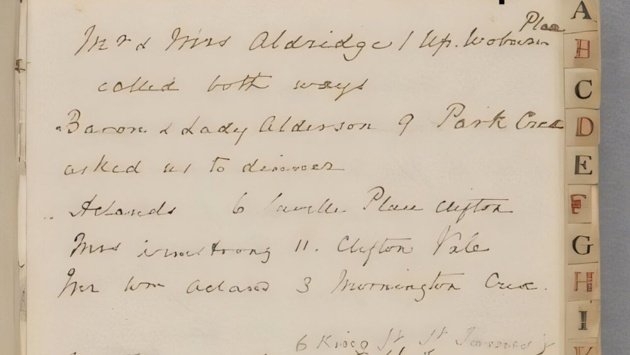 Place
Mr & Mrs Aldridge 1 Up. Woburn
called both ways
Baron & Lady Alderson 9 Park Cres
asked us to dinner
Aclands 6 Place Clifton
Mrs Armstrong 11. Clifton Vale
Mr Wm Acland 3 Mornington Cres.
6 King St St James's
A
B
C
D
E
F
G
H
I
K